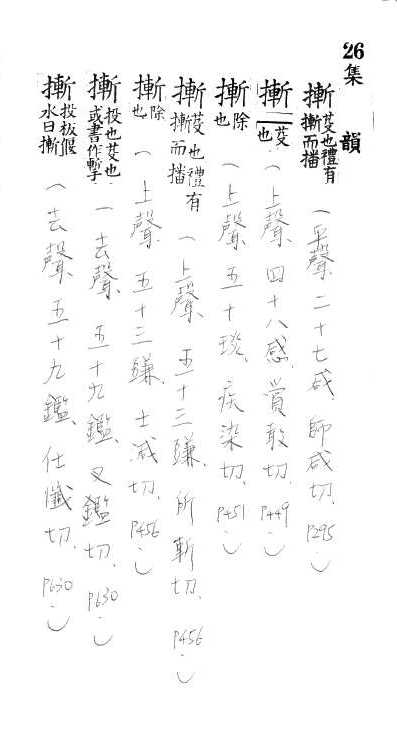 26集韻
摲芟也禮有摲而播（平聲、二十七咸、師咸切、P295。）
摲芟也（上聲、四十八感、賞敢切、P449。）
摲除也（上聲、五十琰、疾染切、P451。）
摲芟也禮有摲而播（上聲、五十三豏、所斬切、P456。）
摲除也（上聲、五十三豏、士减切、P456。）
摲投也芟也或書作蹔（去聲、五十九鑑、又鑑切、P630。）
摲投板偃水日摲（去聲、五十九鑑、仕懺切、P630。）